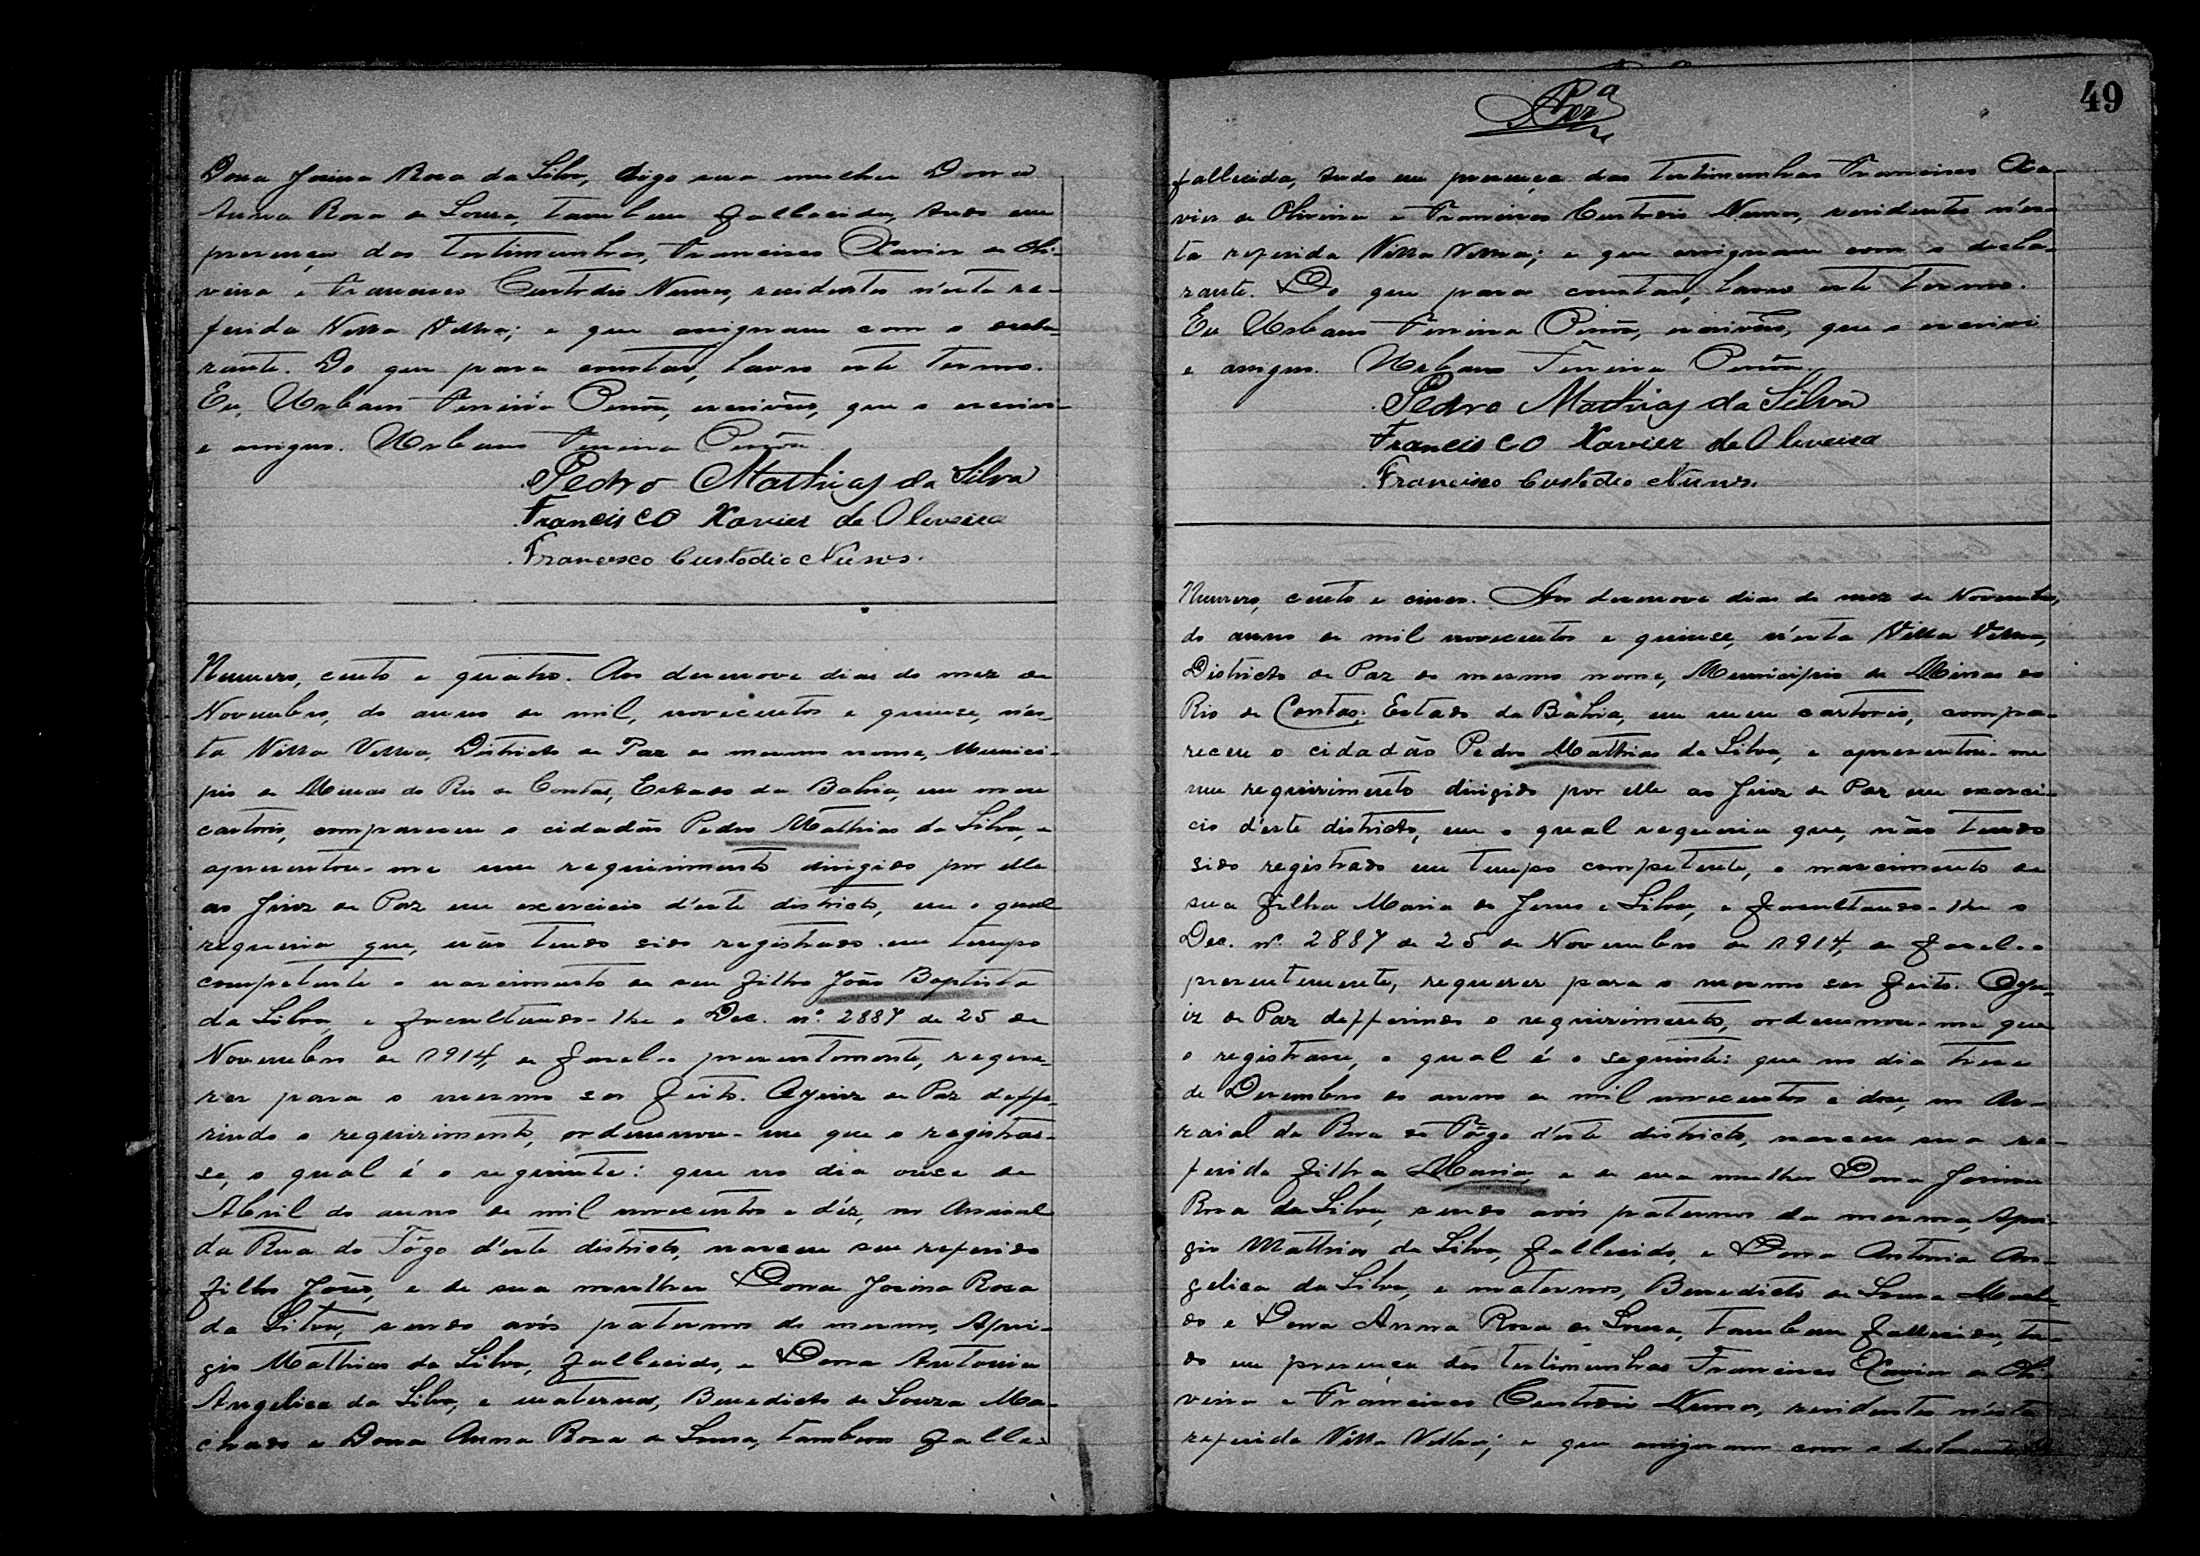 Dona Josina Rosa da Silva, digo sua mulher Dona
Anna Rosa de Souza, tambem fallecida, tudo em
presença das testimunhas, Francisco Xavier de Oli-
veira e Francisco Custodio Nunes, residentes n'esta re-
ferida Villa Velha; e que assignam com o decla-
rante. Do que para constar, lavro este termo.
Eu, Urbano Ferreira escrivão, que o escrevi
e assigno. Urbano Ferreira
Pedro Mathias da Silva
Francisco Xavier de Oliveira
Francisco Custodio Nunes.
Numero, cento e quatro. Aos desenove dias do mez de
Novembro, do anno de mil, novecentos e quinse, n'es-
ta Villa Velha, Districto de Paz do mesmo nome, Munici-
pio de Minas do Rio de Contas, Estado da Bahia, em meu
cartorio, compareceu o cidadão Pedro Mathias da Silva, e
apresentou-me um requirimento dirigido por elle
ao Juiz de Paz em exercicio d'este districto, em o qual
requeria que, não tendo sido registrado em tempo
competente o nascimento de seu filho João Baptista
da Silva, e facultando-lhe o Dec. nº. 2887 de 25 de
Novembro de 1914, de fasel-o presentemente, reque-
rer para o mesmo ser feito. O Juiz de Paz deffe-
rindo o requirimento, ordennou-me que o registras-
se, o qual é o seguinte: que no dia onse de
Abril do anno de mil novecentos e déz, no Arraial
da Rua do Fôgo d'este districto, nasceu seu referido
filho João, e de sua mulher Dona Josina Rosa
da Silva, sendo avós paternos do mesmo, Apri-
gio Mathias da Silva, fallecido, e Dona Antonia
Angelica da Silva, e maternos, Benedicto de Souza Ma-
chado e Dona Anna Rosa de Souza, tambem falle-
49
fallecida, tudo em presença das testimunhas Francisco Xa-
vier de Oliveira e Francisco Custodio Nunes, residentes n'es-
ta referida Villa Velha; e que assignam com o decla-
rante. Do que para constar, lavro este termo.
Eu Urbano Ferreira escrivão, que o escrevi
e assigno. Urbano Ferreira
Pedro Mathias da Silva
Francisco Xavier de Oliveira
Francisco Custodio Nunes.
Numero, cento e cinco. Aos desenove dias do mez de Novembro,
do anno de mil novecentos e quinse, n'esta Villa Velha,
Districto de Paz do mesmo nome, Municipio de Minas do
Rio de Contas, Estado da Bahia, em meu cartorio, compa-
receu o cidadão Pedro Mathias da Silva, e apresentou-me
um requirimento dirigido por elle ao Juiz de Paz em exerci-
cio d'este districto, em o qual requeria que, não tendo
sido registrado em tempo competente, o nascimento de
sua filha Maria de Jesus e Silva, e facultando-lhe o
Dec. nº. 2887 de 25 de Novembro de 1914, de fasel-o
presentemente, requerer para o mesmo ser feito. O Ju-
iz de Paz defferindo o requirimento, ordennou-me que
o registrasse, o qual é o seguinte: que no dia trese
de Desembro do anno de mil novecentos e dose, no Ar-
raial da Rua do Fôgo d'este districto, nasceu sua re-
ferida filha Maria, e de sua mulher Dona Josina
Rosa da Silva, sendo avós paternos da mesma, Apri-
gio Mathias da Silva, fallecido, e Dona Antonia An-
gelica da Silva, e maternos, Benedicto de Souza Macha-
do e Dona Anna Rosa de Souza, tambem fallecida, tu-
do em presença das testimunhas Francisco Xavier de Oli-
veira e Francisco Custodio Nunes, residentes n'esta
referida Villa Velha; e que assignam com o declarante.